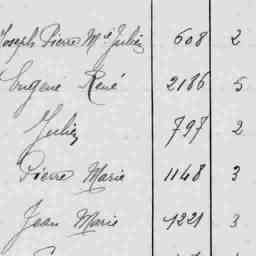 Joseph Pierre M. Julien 608 2
Eugène René 2186 5
Julien 797 2
Pierre Marie 1148 3
Jean Marie 1221 3